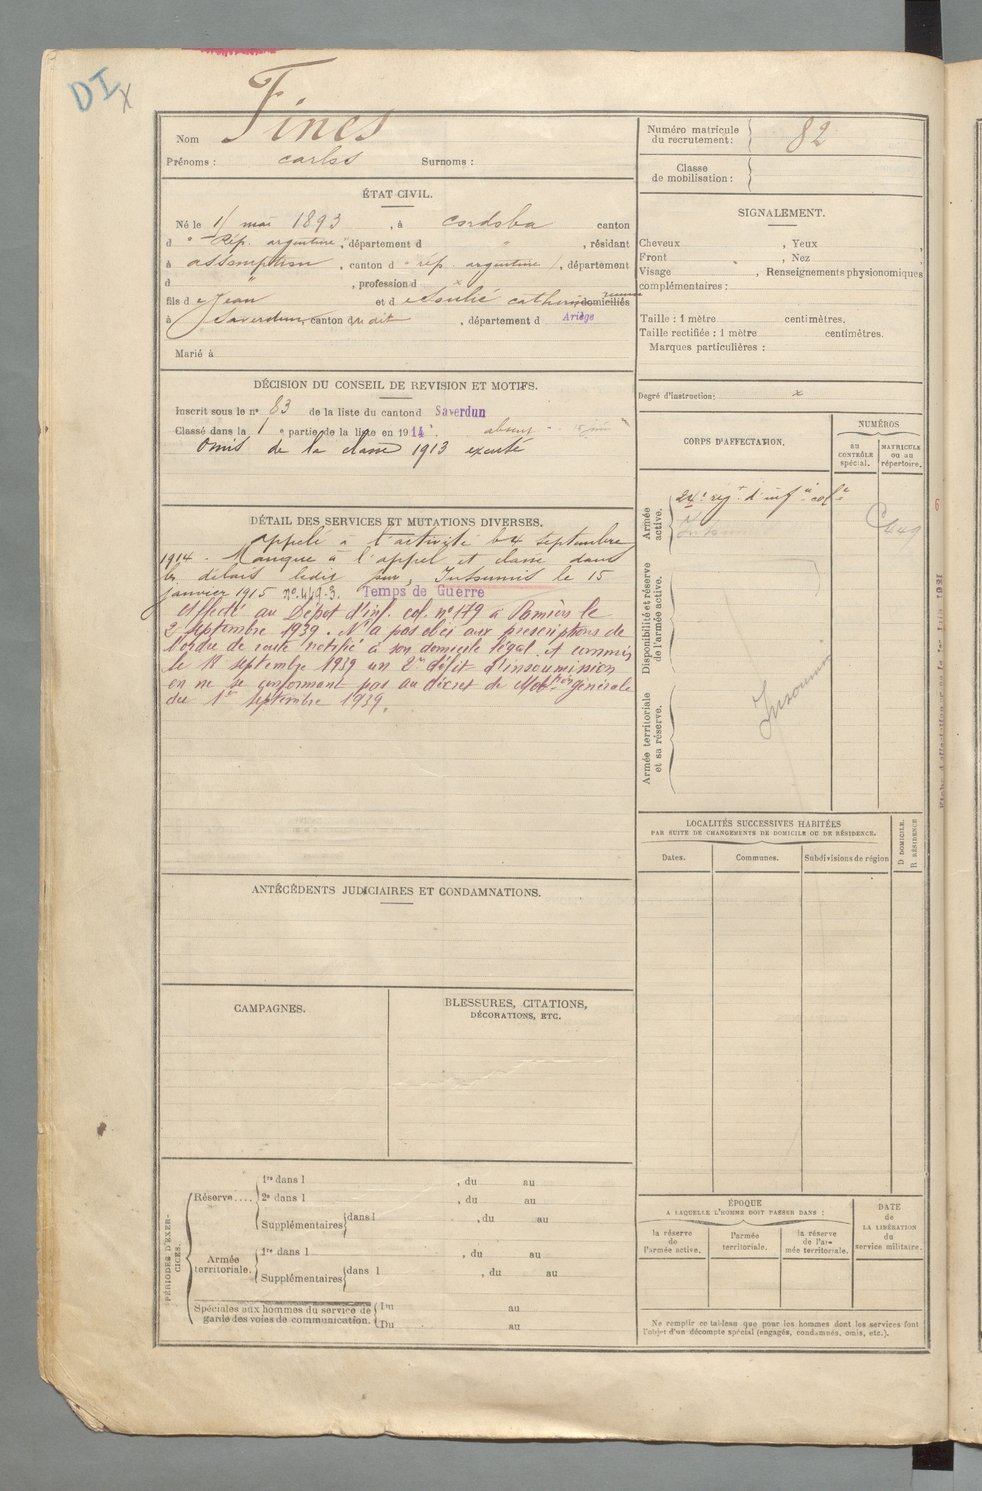 DI
x
Nom Fines
Prénoms : carlos Surnoms :
ÉTAT CIVIL.
Né le 11 mai 1893, à cordoba canton
d " Rép. argentine, département d " , résidant
à assomption, canton d rép. argentine, département
d " , profession d x
fils de Jean et de catherine domiciliés
à Saverdun, canton du dit, département d Ariège
Marié à
DÉCISION DU CONSEIL DE REVISION ET MOTIFS.
Inscrit sous le n° 83 de la liste du canton d Saverdun
Classé dans la 1 e partie de la liste en 1914. absent
Omis de la classe 1913 excusé
DÉTAIL DES SERVICES ET MUTATIONS DIVERSES.
Appelé à l'activité le 4 septembre
1914. Manque à l'appel et classé dans
les délais ledit jour, Insoumis le 15
janvier 1915 n° 449-3. Temps de Guerre
Affecté au Dépôt d'inf. col. n° 179 à Pamiers le
2 septembre 1939. N'a pas obéi aux prescriptions de
l'ordre de route notifié à son domicile légal et commis
le 18 septembre 1939 un 2e délit d'insoumission
en ne se conformant pas au décret de Mobtion générale
du 1er septembre 1939.
ANTÉCÉDENTS JUDICIAIRES ET CONDAMNATIONS.
CAMPAGNES.
BLESSURES, CITATIONS,
DÉCORATIONS, ETC.
PÉRIODES D'EXER-
CICES.
Réserve....
1re dans l , du au
2e dans l , du au
Supplémentaires dans l , du au
Armée
territoriale.
1re dans l , du au
Supplémentaires dans l , du au
Spéciales aux hommes du service de
garde des voies de communication.
Du au
Du au
Numéro matricule
du recrutement : 82
Classe
de mobilisation :
SIGNALEMENT.
Cheveux , Yeux ,
Front , Nez
Visage , Renseignements physionomiques
complémentaires :
Taille : 1 mètre centimètres.
Taille rectifiée : 1 mètre centimètres.
Marques particulières :
Degré d'instruction : x
CORPS D'AFFECTATION.
NUMÉROS
AU
CONTRÔLE
spécial.
MATRICULE
OU AU
répertoire.
Armée
active.
24e regt d'infie cole
449
Disponibilité et réserve
de l'armée active.
Armée territoriale
et sa réserve.
Insoumis
LOCALITÉS SUCCESSIVES HABITÉES
PAR SUITE DE CHANGEMENTS DE DOMICILE OU DE RÉSIDENCE.
Dates.
Communes.
Subdivisions de région
D DOMICILE.
R RÉSIDENCE
ÉPOQUE
A LAQUELLE L'HOMME DOIT PASSER DANS :
la réserve
de
l'armée active.
l'armée
territoriale.
la réserve
de l'ar-
mée territoriale.
DATE
de
LA LIBÉRATION
du
service militaire.
Ne remplir ce tableau que pour les hommes dont les services font
l'objet d'un décompte spécial (engagés, condamnés, omis, etc.).